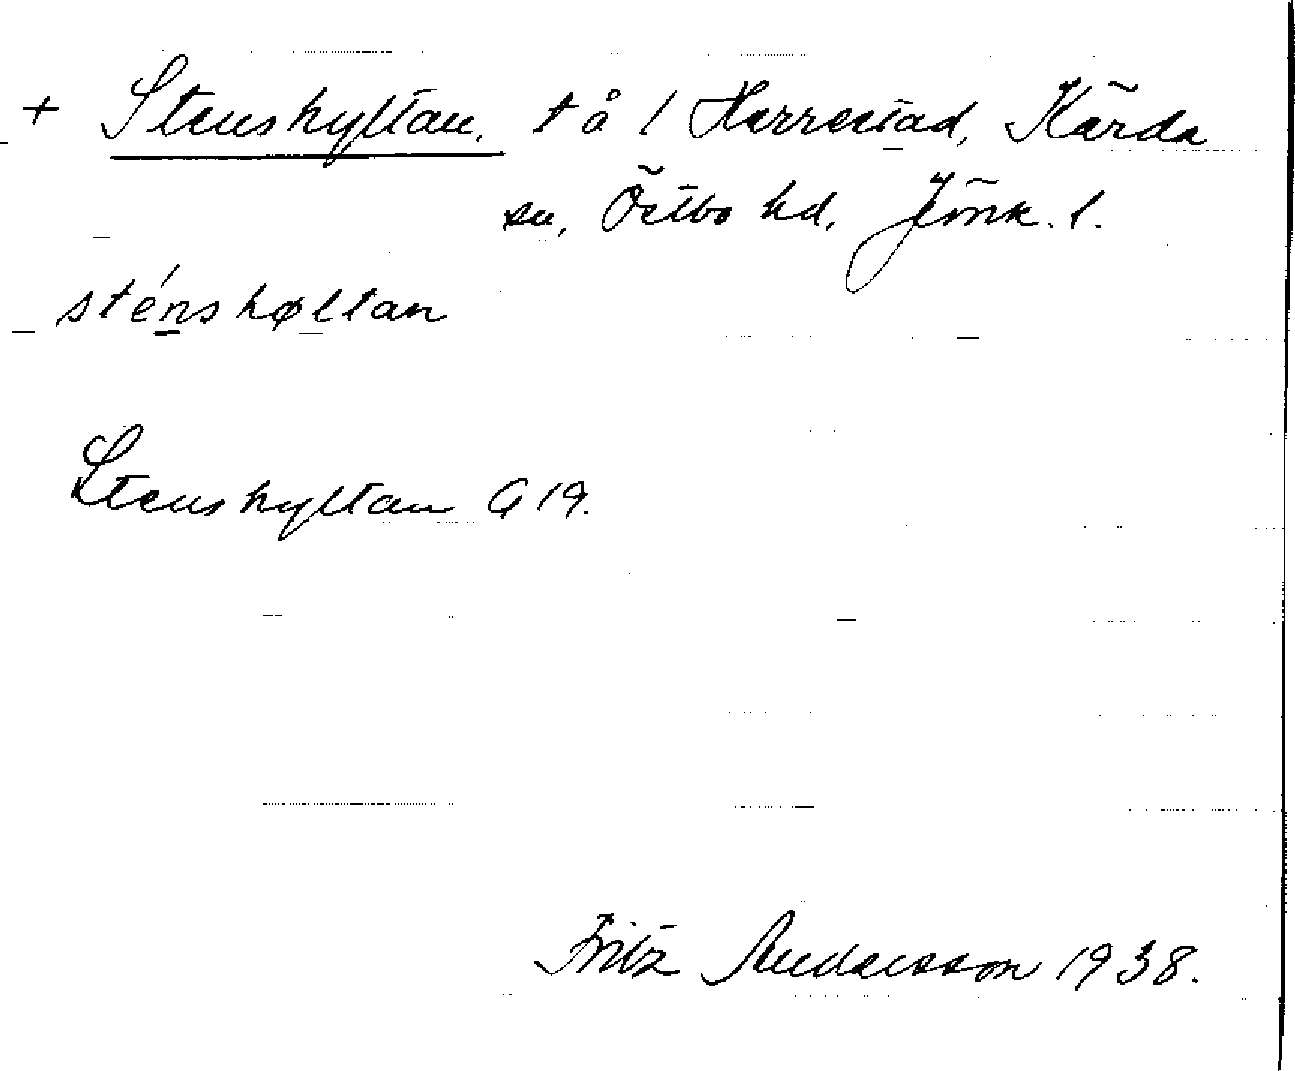 + Stenshyltan. t å 1 Herrestad, Kärda
sn, Östbo hd, Jönk. l.
sténshøltan
Stenshyltan G 19.
Fritz Andersson 1938.